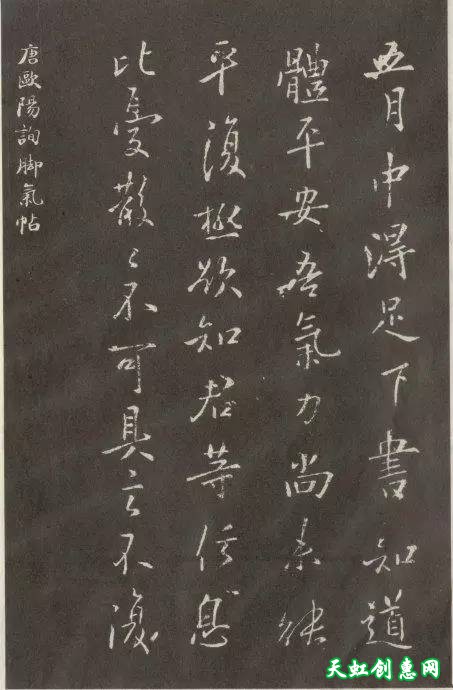 五月中得足下書知道
體平安吾氣力尚未能
平復極欲知君等信息
比憂散〻不可具言不復
唐歐陽詢脚氣帖
天虹创惠网